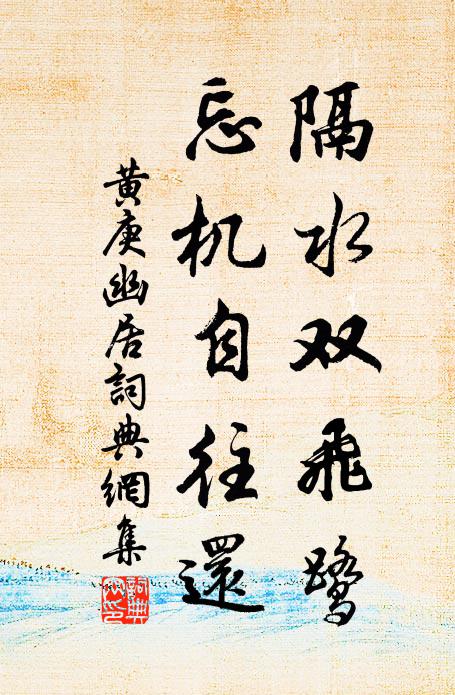 隔水双飛鷺
忘机自往還
黄庚幽居詞典網集